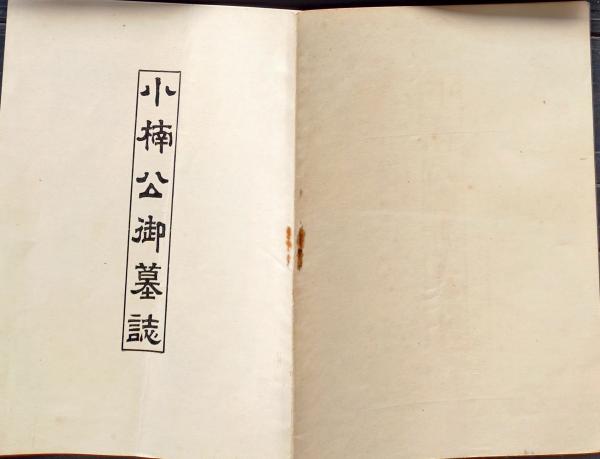 小楠公御墓誌